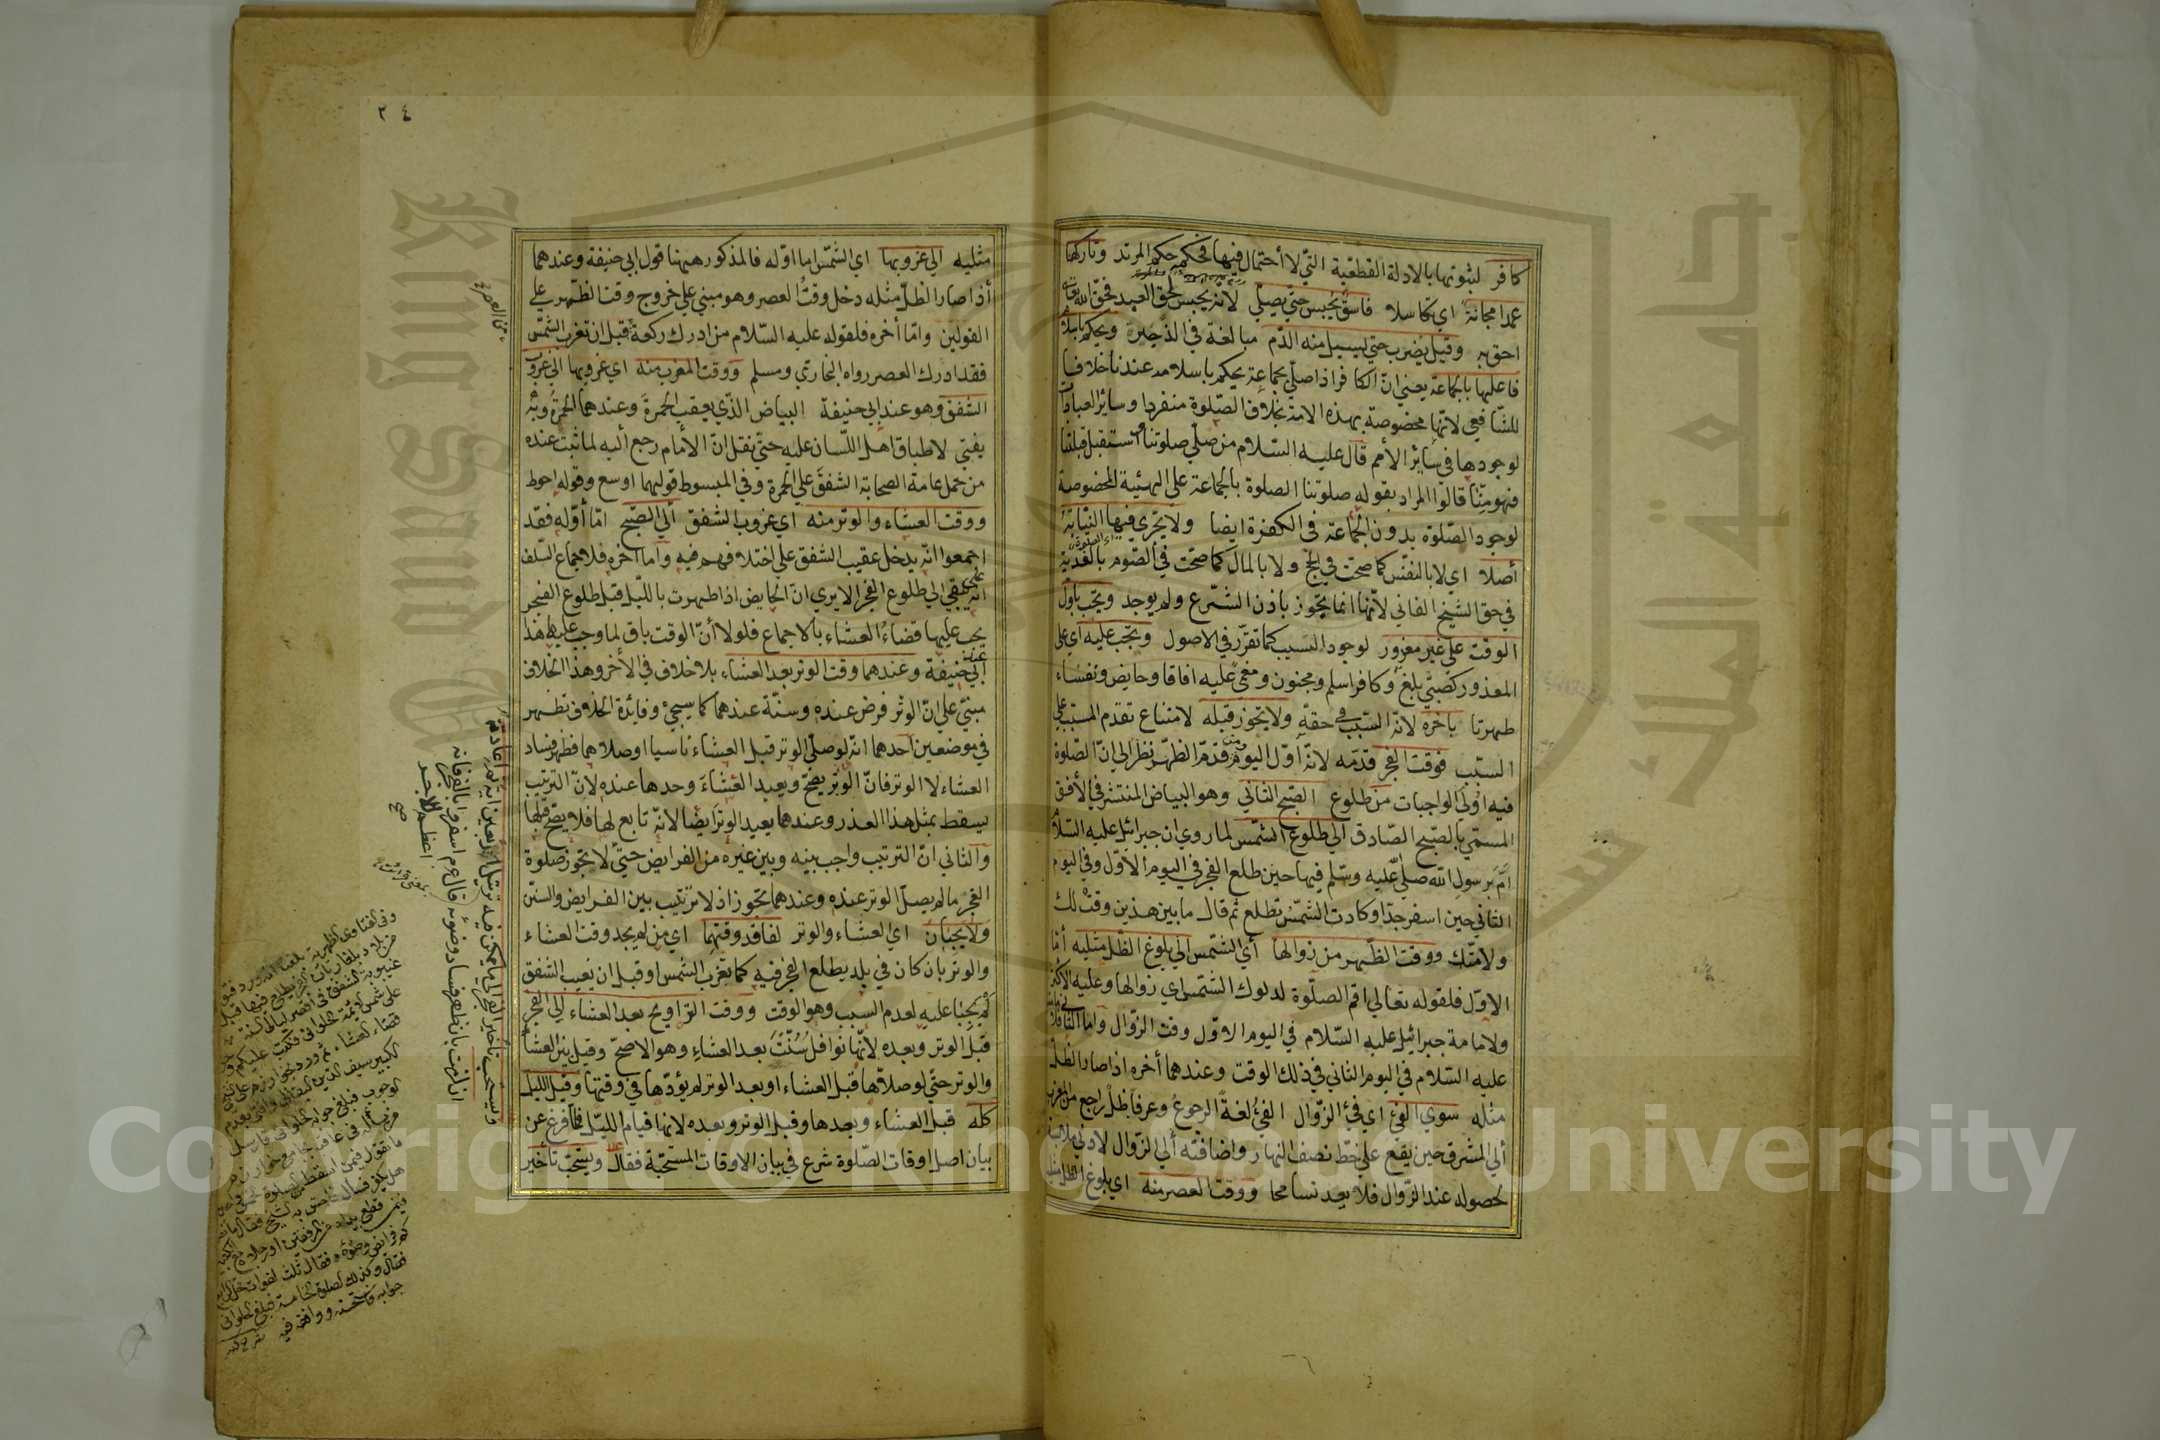 كافر لثبوتها بالادلة القطعية التي لا احتمال فيها فحكمه حكم المرتد وتاركها
عمدا مجانة اي تكاسلا فاسق يحبس حتى يصلي لانه يحبس لحق العبد فحق الله تعالى
احق به وقيل يضرب حتى يسيل منه الدم مبالغة في الزجر ويحكم باسلام
فاعلها بالجماعة يعني ان الكافر اذا صلى بجماعة يحكم باسلامه عندنا خلافا
للشافعي لانها مخصوصة بهذه الامة بخلاف الصلوة منفردا وسائر العبادات
لوجودها في سائر الأمم قال عليه السلام من صلى صلوتنا واستقبل قبلتنا
فهو منا قالوا المراد بقوله صلوتنا الصلوة بالجماعة على الهيئية المخصوصة
لوجود الصلوة بدون الجماعة في الكفرة ايضا ولا يجري فيها النيابة
أصلا اي لا بالنفس كما صحت في الحج ولا بالمال كما صحت في الصوم بالفدية
في حق الشيخ الفاني لأنها انما يجوز باذن الشرع ولم يوجد ويجب باول
الوقت على غير معزور لوجود السبب كما تقرر في الاصول ويجب عليه اي على
المعذور كصبي بلغ وكافر اسلم ومجنون ومغمى عليه افاقا وحايض ونفساء
طهرتا باخره لانه السبب في حقه ولا يجوز قبله لامتناع تقدم المسبب على
السبب فوقت الفجر قدمه لانه اول اليوم ومن قدم الظهر نظر الى ان الصلوة
فيه اولى الواجبات من طلوع الصبح الثاني وهو البياض المنتشر في الأفق
المسمى بالصبح الصادق الى طلوع الشمس لما روي ان جبرائيل عليه السلام
ام برسول الله صلى عليه وسلم فيها حين طلع الفجر في اليوم الأول وفي اليوم
الثاني حين اسفر جدا وكادت الشمس تطلع ثم قال ما بين هذين وقت لك
ولامتك ووقت الظهر من زوالها أي الشمس الى بلوغ الظل مثليه أما
الاول فلقوله تعالى اقم الصلوة لدلوك الشمس اي زوالها وعليه الاكثر
ولامامة جبرائيل عليه السلام في اليوم الاول وقت الزوال واما الثاني فلامامته
عليه السلام في اليوم الثاني في ذلك الوقت وعندهما أخره اذا صار الظل
مثله سوى الفئ اي فئ الزوال الفئ لغة الرجوع وعرفا ظل راجع من المغرب
ألى المشرق حين يقع على خط نصف النهار واضافته ألى الزوال لادنى ملابسة
لحصوله عند الزوال فلا يعد تسامحا ووقت العصر منه اي بلوغ الظل مثليه
٢٤
مثليه الى غروبها اي الشمس اما اوله فالمذكور ههنا قول ابي حنيفة وعندهما
أذا صار الظل مثله دخل وقت العصر وهو مبني على خروج وقت الظهر على
القولين واما أخره فلقوله عليه السلام من ادرك ركعة قبل ان تغرب الشمس
فقد ادرك العصر رواه البخارتي ومسلم ووقت المغرب منه اي غروبها الى غروب
الشفق وهو عند ابي حنيفة البياض الذي يعقب الحمرة وعندهما الحمرة وبه
يفتى لاطباق اهل اللسان عليه حتى نقل ان الأمام رجع أليه لما ثبت عنده
من حمل عامة الصحابة الشفق على الحمرة وفي المبسوط قولهما اوسع وقوله احوط
ووقت العشاء والوتر منه اي غروب الشفق الى الصبح اما أوله فقد
اجمعوا انه يدخل عقيب الشفق على اختلافهم فيه واما اخره فلاجماع السلف
انه يبقى الى طلوع الفجر الا يرى ان الحايض اذا طهرت بالليل قبل طلوع الفجر
يجب عليها قضاء العشاء بالاجماع فلولا أن الوقت باق لما وجب عليها هذا
عند ابي حنيفة وعندهما وقت الوتر بعد العشاء بلا خلاف في الأخر وهذا الخلاف
مبني على ان الوتر فرض عنده وسنة عندهما كما سيجئ وفائدة الخلاف تظهر
في موضعين احدهما انه لو صلى الوتر قبل العشاء ناسيا او صلاهما فظهر فساد
العشاء لا الوتر فان الوتر يصح ويعيد العشاء وحدها عنده لان الترتيب
يسقط بمثل هذا العذر وعندهما يعيد الوتر ايضا لانه تابع لها فلا يصح قبلها
والثاني ان الترتيب واجب بينه وبين غيره من الفرايض حتى لا يجوز صلوة
الفجر ما لم يصل الوتر عنده وعندهما يجوز اذ لا ترتيب بين الفرايض والسنن
ولا يجبان اي العشاء والوتر لفاقد وقتهما اي من لم يجد وقت العشاء
والوتر بان كان في بلد يطلع الفجر فيه كما تغرب الشمس او قبل ان يغيب الشفق
لم يجبا عليه لعدم السبب وهو الوقت ووقت التراويح بعد العشاء الى الفجر
قبل الوتر وبعده لانها نوافل سنت بعد العشاء وهو الاصح وقيل بين العشاء
والوتر حتى لو صلاها قبل العشاء او بعد الوتر لم يؤدها في وقتها وقيل الليل
كله قبل العشاء وبعدها وقبل الوتر وبعده لانها قيام الليل فلما فرغ عن
بيان اصل اوقات الصلوة شرع في بيان الاوقات المستحبة فقال ويستحب تأخير
ويستحب تأخير الفجر الى ما يمكن فيه ترتيل اربعين اية ثم اعادته
ان لزمت بان ظهر فساد وضوئه قال عم اسفروا بالفجر فانه
اعظم للاجر
صح